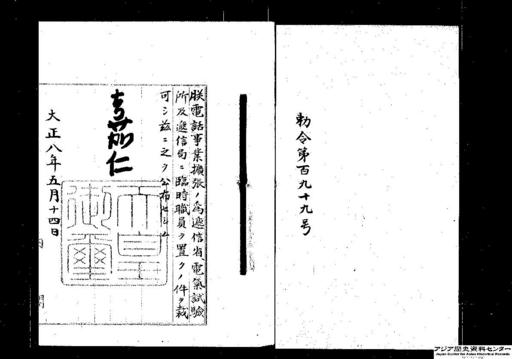 勅令第百九十九号
朕電話事業擴張ノ為遞信省電氣試驗
所及遞信局ニ臨時職員ヲ置クノ件ヲ裁
可シ茲ニ之ヲ公布セシム
嘉仁
天皇御璽
大正八年五月十四日
アジア歴史資料センター
Japan Center for Asian Historical Records